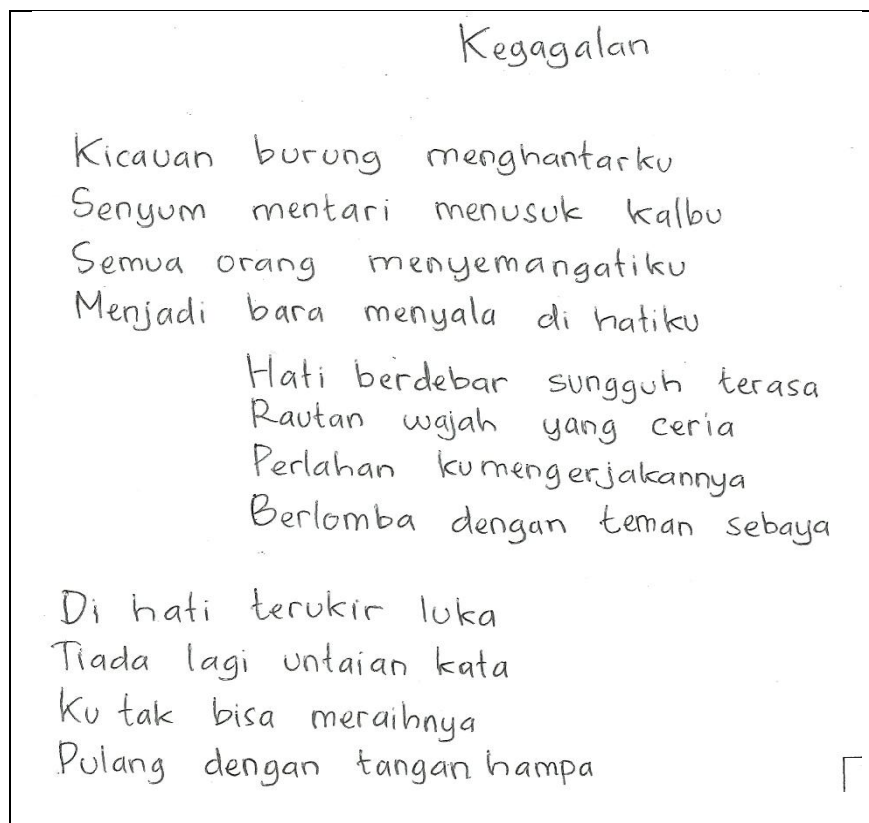 Kegagalan
Kicauan burung menghantarku
Senyum mentari menusuk kalbu
Semua orang menyemangatiku
Menjadi bara menyala di hatiku
Hati berdebar sungguh terasa
Rautan wajah yang ceria
Perlahan kumengerjakannya
Berlomba dengan teman sebaya
Di hati terukir luka
Tiada lagi untaian kata
Ku tak bisa meraihnya
Pulang dengan tangan hampa